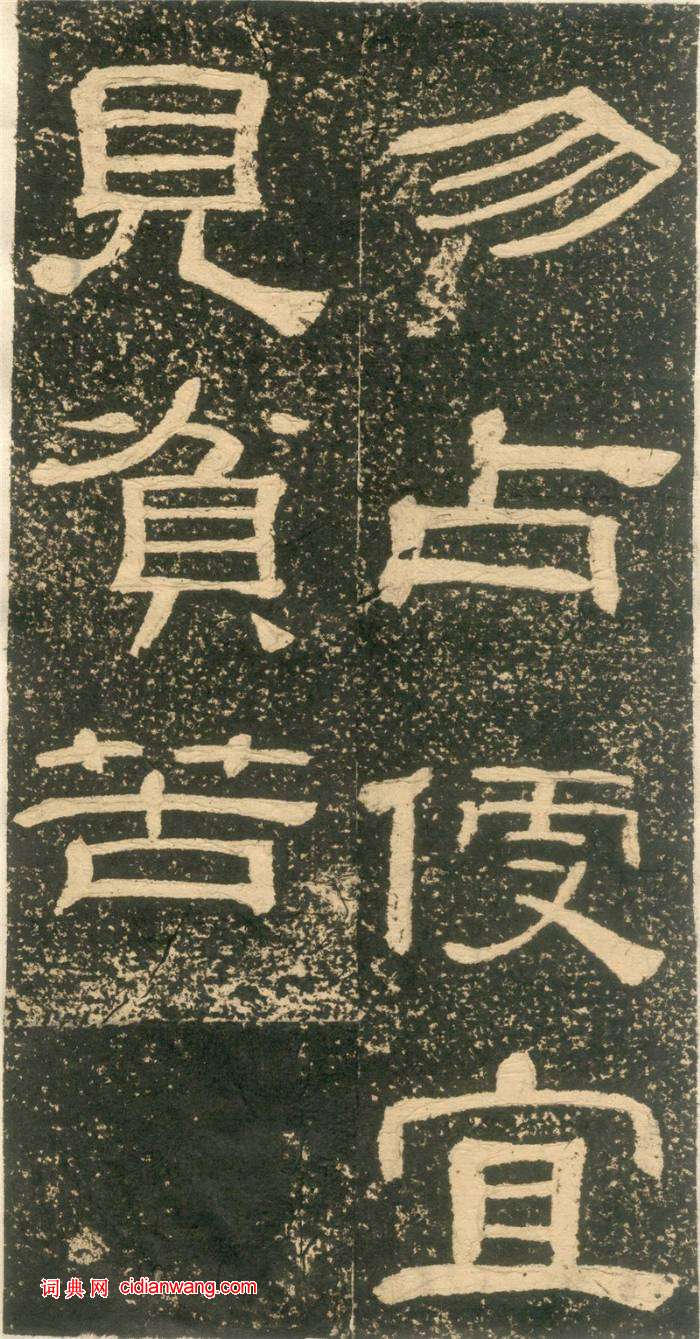 勿占便宜
見貧苦
词典网 cidianwang.com